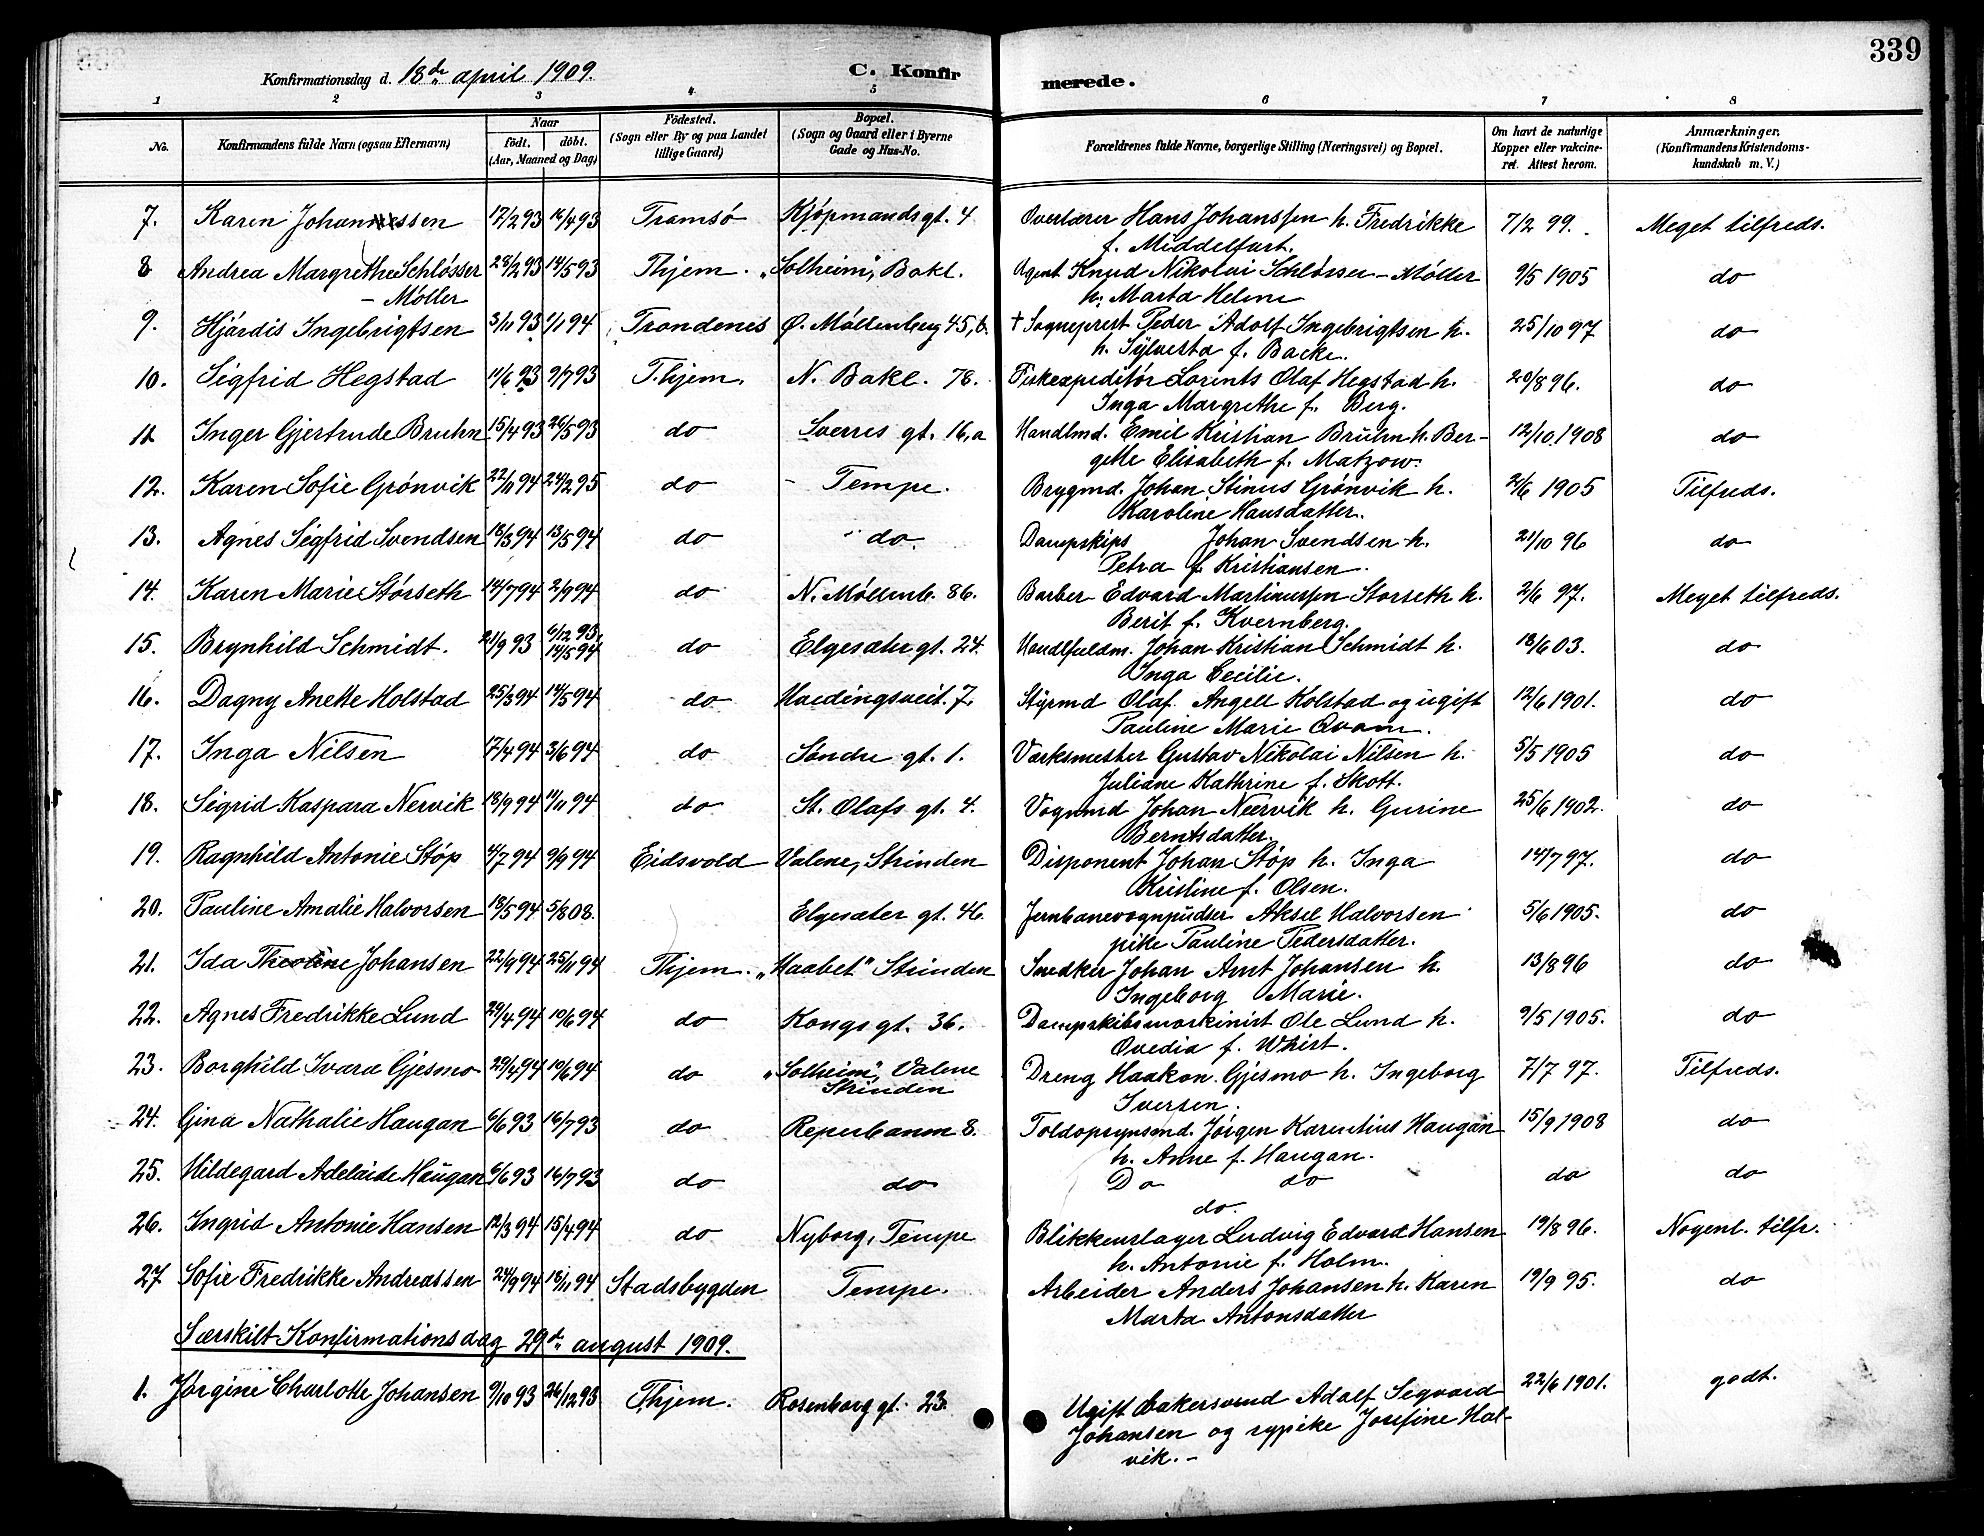 339
Konfirmationsdag d. 18de april 1909.
C. Konfirmerede.
1 2 3 4 5 6 7 8
No.
Konfirmandens fulde Navn (ogsaa Efternavn)
Naar
födt. döbt.
(Aar, Maaned og Dag)
Födested.
(Sogn eller By og paa Landet
tillige Gaard)
Bopæl.
(Sogn og Gaard eller i Byerne
Gade og Hus-No.
Forældrenes fulde Navne, borgerlige Stilling (Næringsvei) og Bopæl.
Om havt de naturlige
Kopper eller vakcine-
ret. Attest herom.
Anmærkninger.
(Konfirmandens Kristendoms-
kundskab m. V.)
7. Karen Johanssen 17/2 93 16/4 93 Tromsø Kjøpmandsgt. 4 Overlærer Hans Johanssen h. Fredrikke 7/2 99. Meget tilfreds.
f. Middelfart.
8 Andrea Margrethe Schlösser 28/2 93 14/5 93 Thjem. "Solheim", Bakl. Agent Knud Nikolai Schlösser-Møller 9/5 1905 do
- Møller h. Marta Helene
9. Hjørdis Ingebrigtsen 3/11 93 1/1 94 Trondenes Ø. Møllenberg 45, b. + Sogneprest Peder Adolf Ingebrigtsen h. 25/10 97 do
h. Sylvesta f. Backe.
10. Sigfrid Hegstad 11/6 93 9/7 93 T.hjem. N. Bakl. 78. Fiskexpeditør Lorents Olaf Hegstad h. 20/8 96. do
Inga Margrethe f. Berg.
11 Inger Gjertrude Bruhn 15/4 93 26/5 93 do Sverres gt. 16, a Handlmd. Emil Kristian Bruhn h. Ber- 12/10. 1908 do
gitte Elisabeth f. Matzow.
12. Karen Sofie Grønvik 22/11 94 24/2 95 do - Tempe. Brygmd. Johan Stinus Grønvik h. 2/6 1905 Tilfreds.
Karoline Hansdatter.
13. Agnes Sigfrid Svendsen 18/3 94 13/5 94 do do. Dampskips Johan Svendsen h. 21/10 96 do
Petra f. Kristiansen.
14. Karen Marie Størseth 14/7 94 2/9 94 do N. Møllenb. 86. Barber Edvard Martinussen Storseth h. 2/6 97. Meget tilfreds.
Berit f. Kvernberg.
15. Brynhild Schmidt. 21/9 93 6/12 93, 14/5 94 do Elgesæter gt. 24. Handlfuldm. Johan Kristian Schmidt h. 18/6 03. do
Inga Cecilie.
16. Dagny Anette Holstad 25/3 94 14/5 94 do Haedingsveit. 7. Styrmd Olaf Angell Kolstad og ugift 12/6 1901. do
Pauline Marie Qvam.
17. Inga Nilsen 17/4 94 3/6 94 do Søndre gt. 1. Værksmester Gustav Nikolai Nilsen h. 5/5 1905 do
Juliane Kathrine f. Skott.
18. Sigrid Kaspara Nervik 18/9 94 11/11 94 do St. Olafs gt. 4. Vognmd Johan Neervik h. Gurine 25/6 1902. do
Berntsdatter.
19. Ragnhild Antonie Støp 4/7 94 9/9 94 Eidsvold Valene, Strinden Disponent Johan Støp h. Inga 14/7 97. do
Kristine f. Olsen.
20. Pauline Amalie Halvorsen 18/5 94 5/8 08. Elgesæter gt. 46. Jernbanevognpudser Aksel Halvorsen 5/6 1905. do
pike Pauline Pedersdatter.
21. Ida Theoline Johansen 22/9 94 25/11 94 Thjem. "Haabet" Strinden Snedker Johan Arnt Johansen h. 13/8 96 do
Ingeborg Marie.
22. Agnes Fredrikke Lund 29/4 94 10/6 94 do Kongs gt. 36. Dampskibsmaskinist Ole Lund h. 9/5 1905. do
Ovedia f. Whist.
23. Borghild Ivara Gjesmo 29/4 94 10/6 94 do "Solheim", Valene Dreng Haakon Gjesmo h. Ingeborg 7/7 97. Tilfreds.
Strinden Iversen.
24. Gina Nathalie Haugan 6/6 93 16/7 93 do Reperbanen 8. Toldopsynsmd. Jørgen Karentius Haugan 15/9 1908 do
h. Anne f. Haugan.
25. Hildegard Adelaide Haugan 6/6 93 16/7 93 do do Do do do do
do.
26. Ingrid Antonie Hansen 12/3 94 15/4 94 do Nyborg, Tempe Blikkenslager Ludvig Edvard Hansen 19/8 96. Nogenl. tilfr.
h. Antonie f. Holm.
27 Sofie Fredrikke Andreassen 24/9 94 18/11 94 Stadsbygden Tempe. Arbeider Anders Johansen h. Karen 19/9 95. do
Marta Antonsdatter
Særskilt Konfirmationsdag 29de august 1909.
1. Jørgine Charlotte Johansen 9/10 93 26/12 93 Thjem. Rosenborg gt. 23. Ugift bakersvend Adolf Segvard 22/6 1901. godt.
Johansen og sypike Josefine Hal-
vik. -